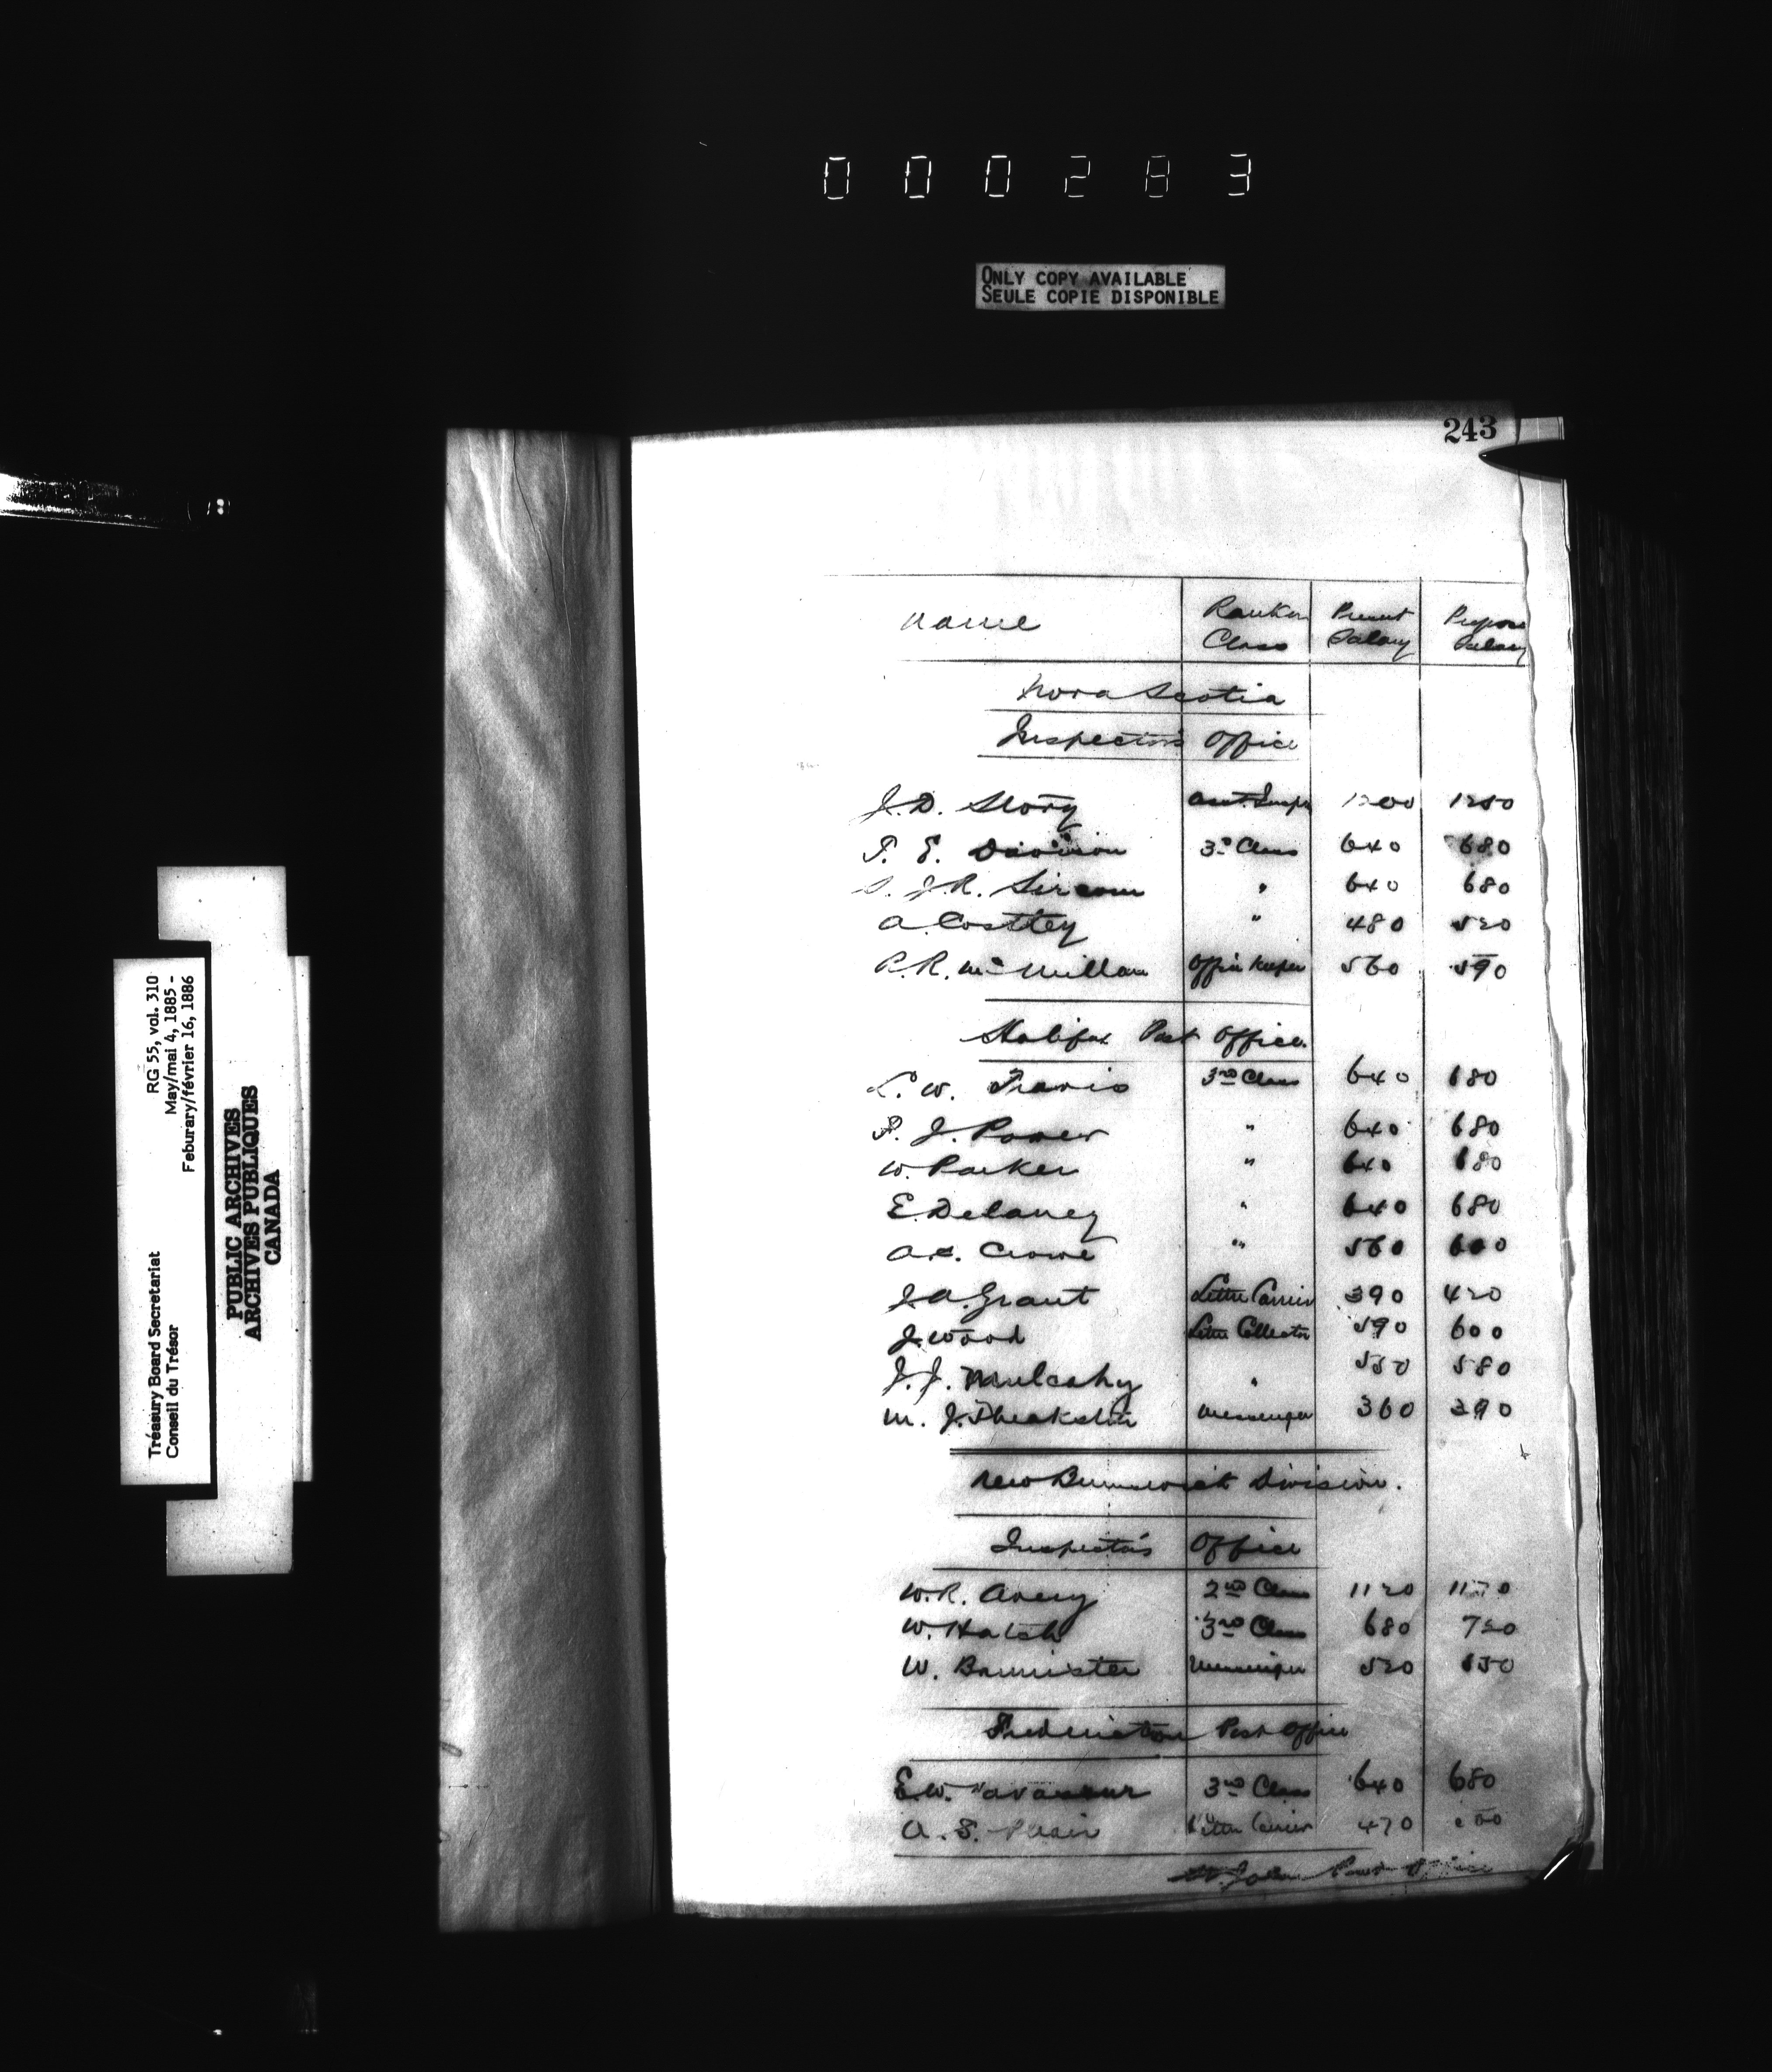 000283
ONLY COPY AVAILABLE
SEULE COPIE DISPONIBLE
243
Name Rank or Class Present Salary Propose Salary
Nova Scotia
Inspector's Office
J.D. Story Asst. Inspr 1200 1250
F. E. Davison 3rd Class 640 680
S. J.R. Sircom " 640 680
A. Costley " 480 520
R.R. McMillan Office Keeper 560 590
Halifax Post Office.
L. W. Travis 3rd Class 640 680
P. J. Power " 640 680
W. Parker " 640 680
E. Delaney " 640 680
A.S. Crowe " 560 600
J.A. Grant Letter Carrier 390 420
J. Wood Letter Collector 590 600
J.J. Mulcahy " 550 580
M. J. Theakston Messenger 360 390
New Brunswick Division.
Inspector's Office
W.R. Avery 2nd Class 1120 1170
W. Hatch 3rd Class 680 720
W. Bannister Messenger 520
Fredericton Post Office
E.W. Vavasour 3rd Class 640 680
A. S. Letter Carrier 470
St. John Post Office
RG 55, vol. 310
May/mai 4, 1885 -
Feburary/février 16, 1886
Treasury Board Secretariat
Conseil du Trésor
PUBLIC ARCHIVES
ARCHIVES PUBLIQUES
CANADA